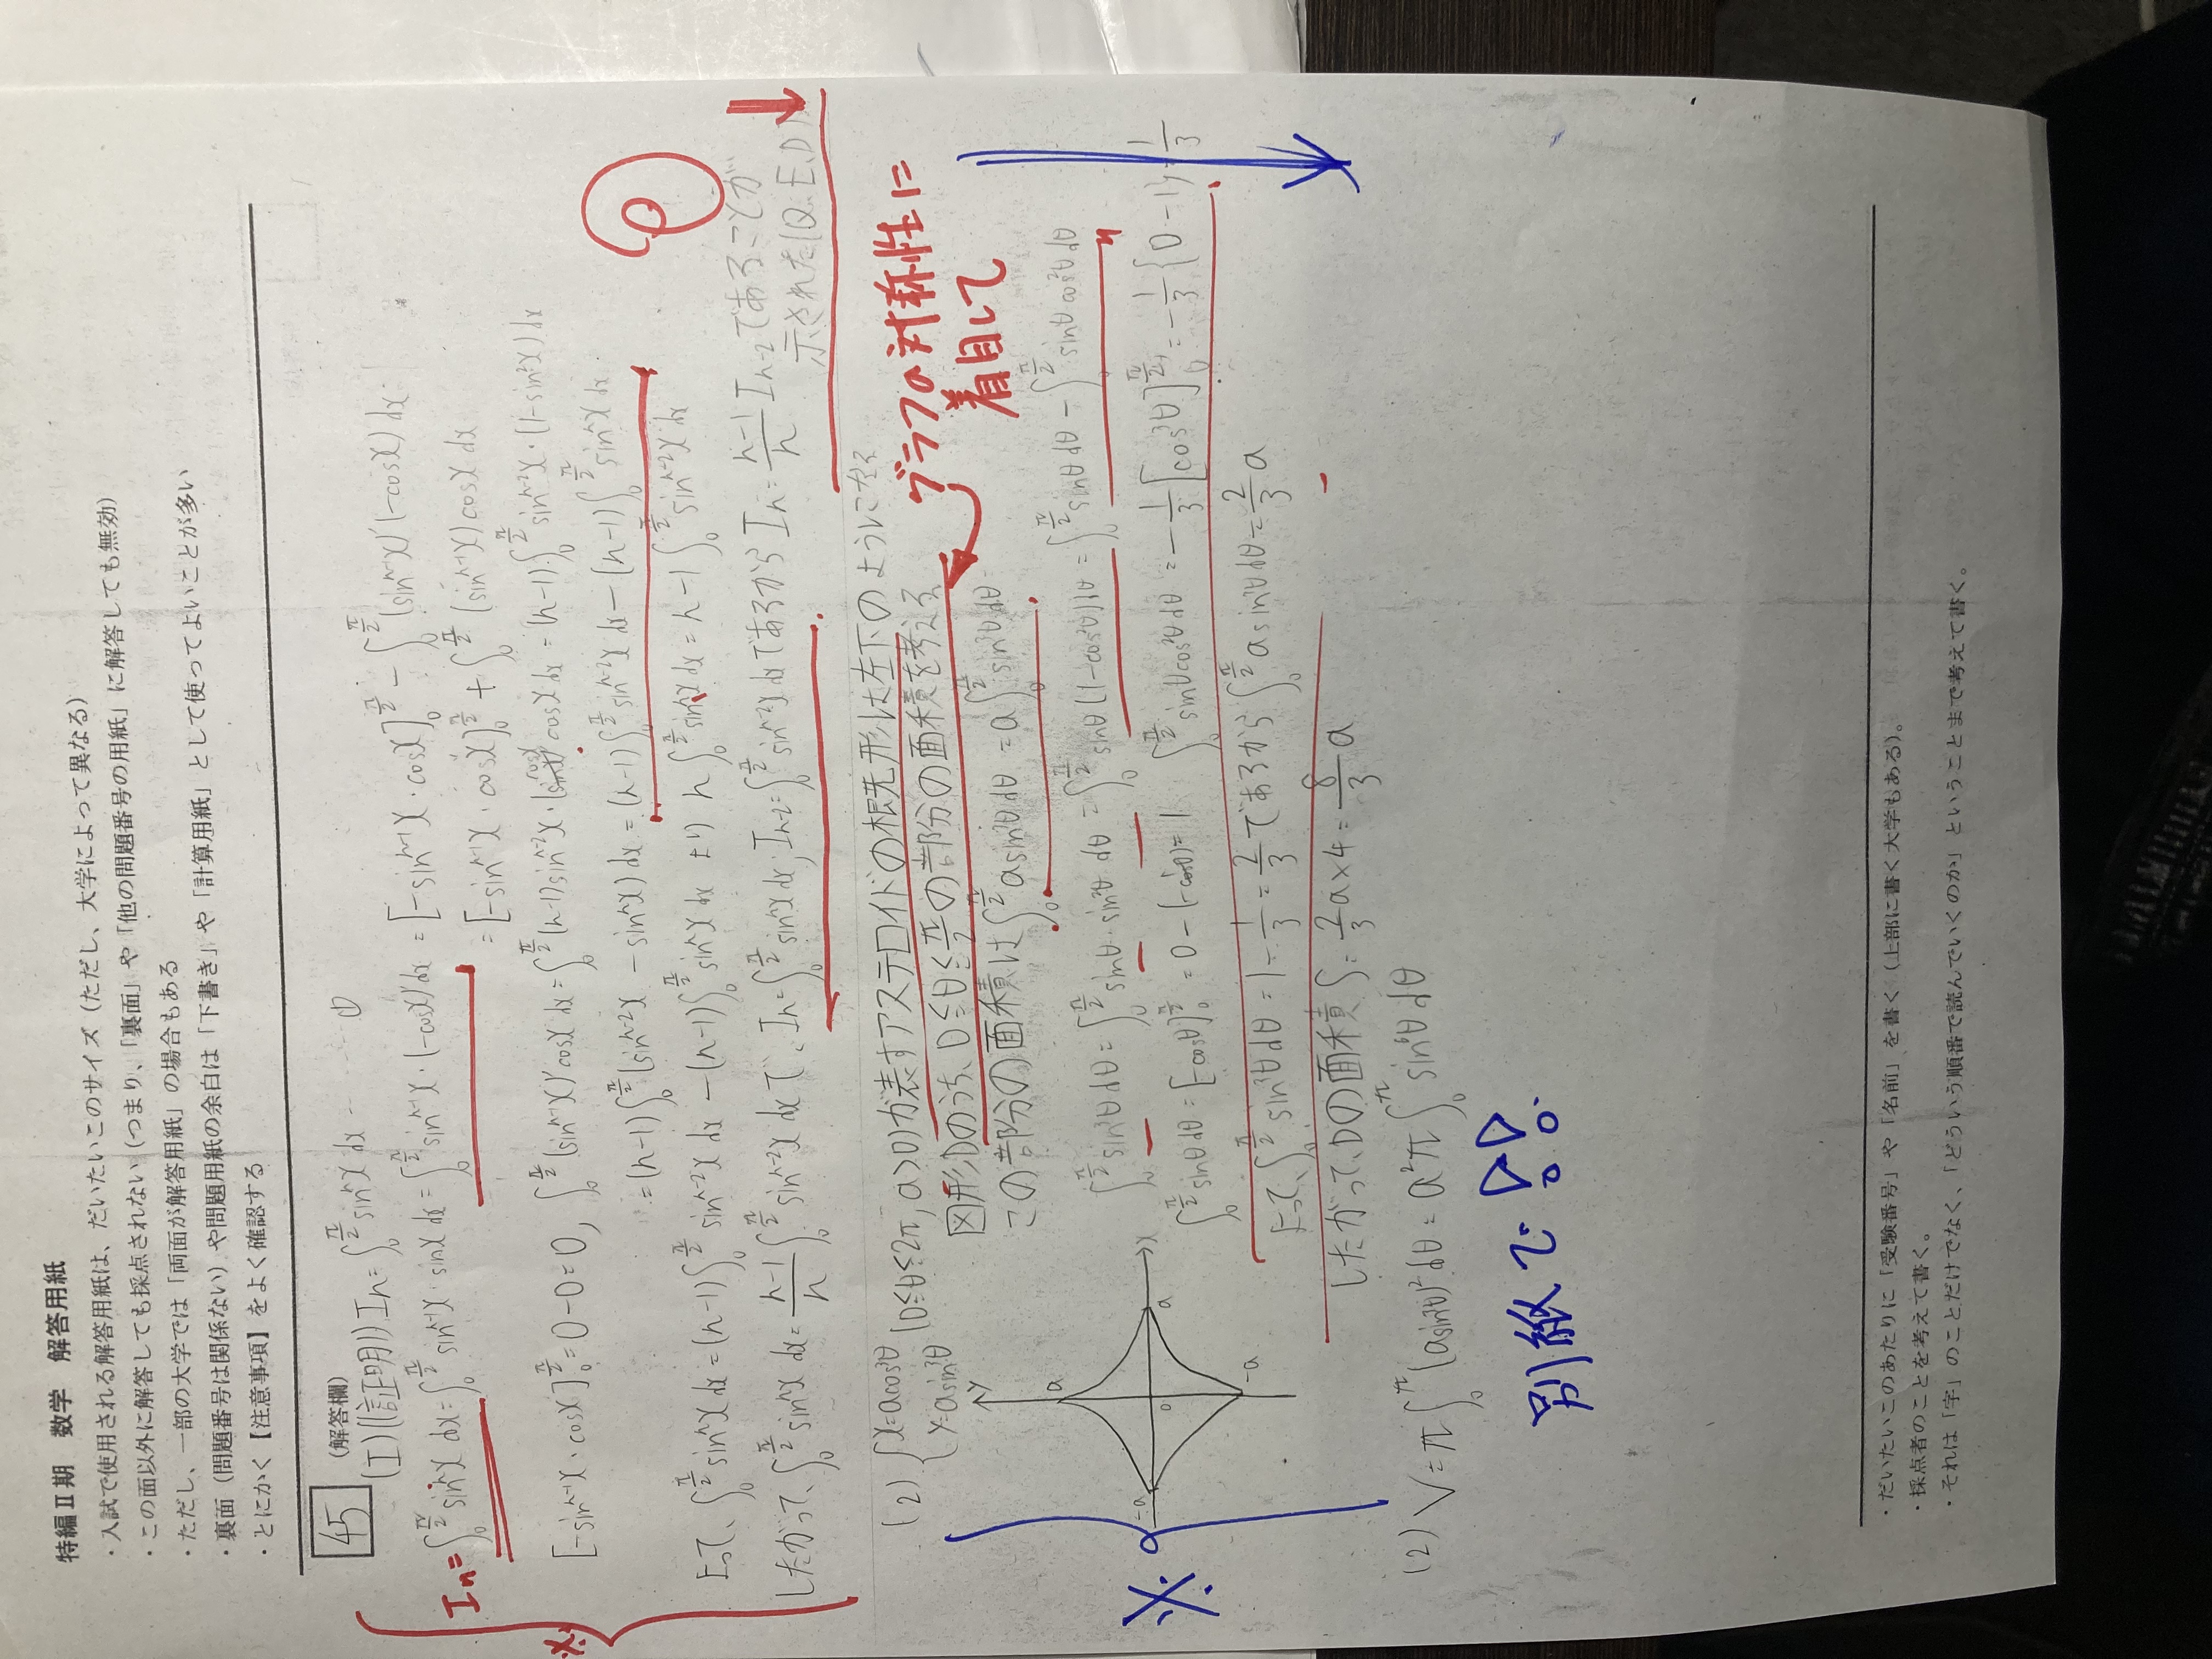 特編Ⅱ期 数学 解答用紙
・入試で使用される解答用紙は、だいたいこのサイズ(ただし、大学によって異なる)
・この面以外に解答しても採点されない(つまり、「裏面」や「他の問題番号の用紙」に解答しても無効)
・ただし、一部の大学では「両面が解答用紙」の場合もある
・裏面(問題番号は関係ない)や問題用紙の余白は「下書き」や「計算用紙」として使ってよいことが多い
・とにかく【注意事項】をよく確認する
45 (解答欄)
(1)(証明) In=∫₀^{π/2} sinⁿx dx ……①
In= ∫₀^{π/2} sinⁿx dx=∫₀^{π/2} sin^{n-1}x・sinx dx=∫₀^{π/2} sin^{n-1}x・(-cosx)'dx=[-sin^{n-1}x・cosx]₀^{π/2} - ∫₀^{π/2} (sin^{n-1}x)'(-cosx)dx
=[-sin^{n-1}x・cosx]₀^{π/2} + ∫₀^{π/2} (sin^{n-1}x)'cosx dx
[-sin^{n-1}x・cosx]₀^{π/2}=0-0=0, ∫₀^{π/2} (sin^{n-1}x)'cosx dx=∫₀^{π/2} (n-1)sin^{n-2}x・cosx・cosx dx=(n-1)∫₀^{π/2} sin^{n-2}x・(1-sin²x)dx
=(n-1)∫₀^{π/2}(sin^{n-2}x-sinⁿx)dx=(n-1)∫₀^{π/2} sin^{n-2}x dx-(n-1)∫₀^{π/2} sinⁿx dx
よって、∫₀^{π/2} sinⁿx dx=(n-1)∫₀^{π/2} sin^{n-2}x dx-(n-1)∫₀^{π/2} sinⁿx dx より n∫₀^{π/2} sinⁿx dx=n-1∫₀^{π/2} sin^{n-2}x dx
したがって、∫₀^{π/2} sinⁿx dx=\frac{n-1}{n}∫₀^{π/2} sin^{n-2}x dxで、In=∫₀^{π/2} sinⁿx dx, In-2=∫₀^{π/2} sin^{n-2}x dxであるから In=\frac{n-1}{n}In-2であることが
示された(Q.E.D)
(2) {x=acos³θ y=asin³θ (0≦θ≦2π, a>0)が表すアステロイドの概形は左下のようになる
グラフの対称性に
着目して
図形Dのうち、0≦θ≦π/2の部分の面積を考える
この部分の面積は∫₀^{π/2} asin³θdθ=a∫₀^{π/2} sin³θdθ
∫₀^{π/2} sin³θdθ=∫₀^{π/2} sinθ・sin²θ dθ=∫₀^{π/2} sinθ(1-cos²θ)dθ=∫₀^{π/2} sinθdθ-∫₀^{π/2} sinθcos²θdθ
∫₀^{π/2} sinθdθ=[-cosθ]₀^{π/2}=0-(-cos0)=1 ∫₀^{π/2} sinθcos²θdθ=-1/3[cos³θ]₀^{π/2}=-1/3{0-1}=1/3
よって、∫₀^{π/2} sin³θdθ=1-1/3=2/3であるから∫₀^{π/2} asin³θdθ=2/3a
したがって、Dの面積S=2/3a×4=8/3a
y
a
-a
0
a
x
-a
(2) V=π∫₀^π (asin³θ)²dθ=a²π∫₀^π sin⁶θdθ
※
※
別紙で!!
・だいたいこのあたりに「受験番号」や「名前」を書く(上部に書く大学もある)。
・採点者のことを考えて書く。
・それは「字」のことだけでなく、「どういう順番で読んでいくのか」ということまで考えて書く。